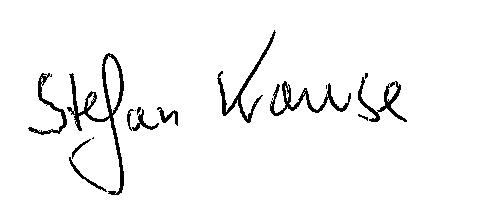 Stefan Krause